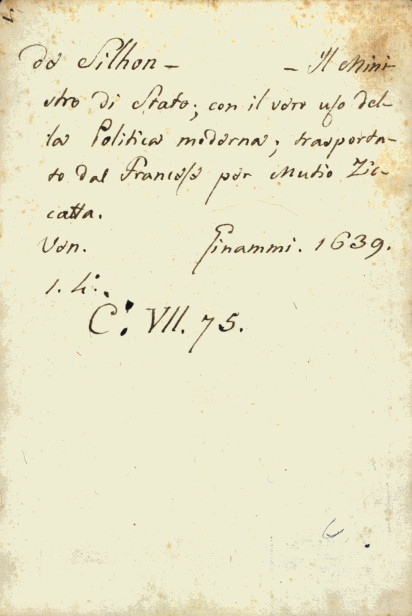 de Silhon — — Il Mini
stro di Stato; con il vero uso del-
la Politica moderna; trasporta-
to dal Francese per Mutio Zic-
catta.
Ven. Ginammi. 1639.
1. 4.°
C. VII. 75.